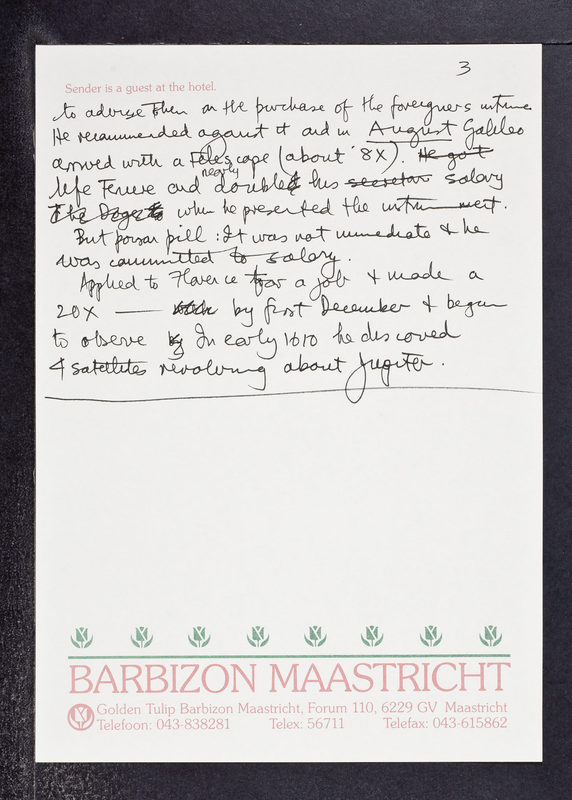 3
Sender is a guest at the hotel.
to advise them on the purchase of the foreigners instrume
He recommended against it and in August Galileo
arrived with a Telescope (about 8X). He got
life Tenure and nearly doubled his secretar salary
The Doge to when he presented the instrument.
But poison pill: It was not immediate & he
was committed to salary.
Applied to Florence for a job & made a
20X — by first December & began
to observe In early 1610 he discovered
4 satellites revolving about Jupiter.
BARBIZON MAASTRICHT
Golden Tulip Barbizon Maastricht, Forum 110, 6229 GV Maastricht
Telefoon: 043-838281 Telex: 56711 Telefax: 043-615862